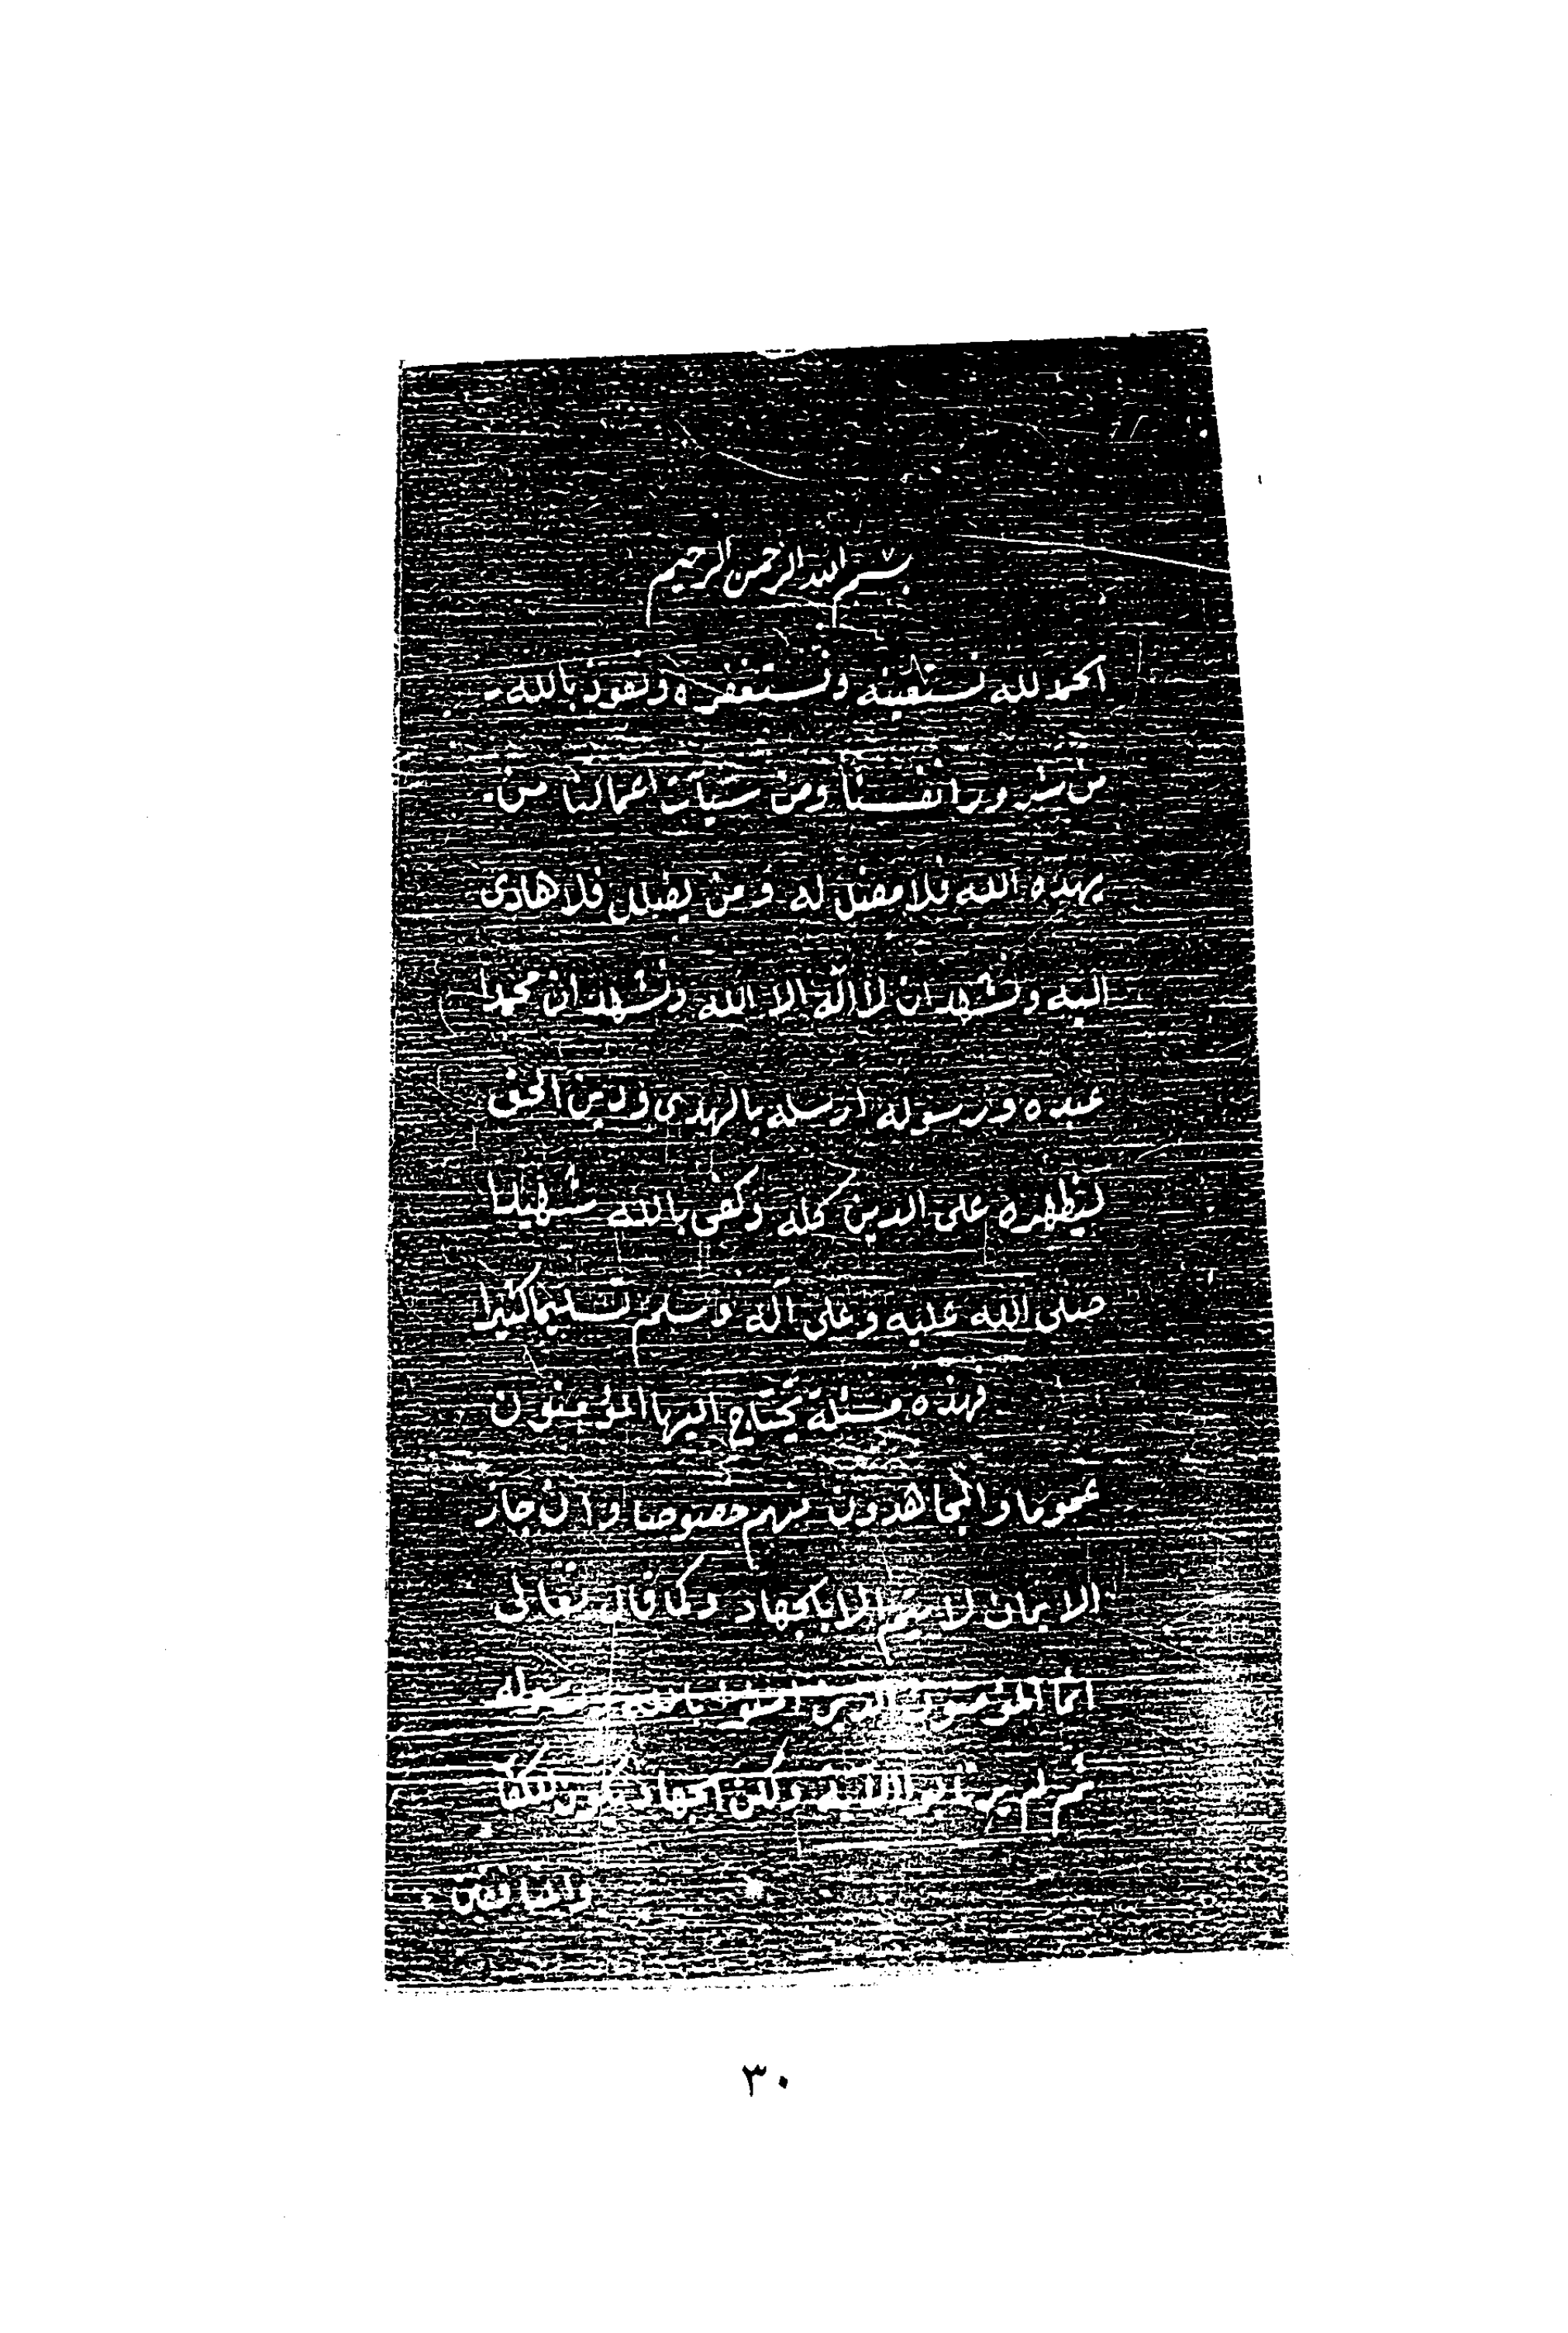 بسم الله الرحمن الرحيم
الحمد لله نستعينه ونستغفره ونعوذ بالله
من شرور انفسنا ومن سيئات اعمالنا من
يهده الله فلا مضل له ومن يضلل فلا هادى
اليه ونشهد ان لا اله الا الله ونشهد ان محمدا
عبده ورسوله ارسله بالهدى ودين الحق
ليظهره على الدين كله وكفى بالله شهيدا
صلى الله عليه وعلى آله وسلم تسليما كثيرا
فهذه مسئلة يحتاج اليها المؤمنون
عموما والمجاهدون منهم خصوصا وان جاز
الايمان لا يتم الا بالجهاد وكما قال تعالى
انما المؤمنون الذين امنوا بالله ورسوله
ثم لم يرتابوا الآية ولكن الجهاد يكون للكفار
والمنافقين
٣٠